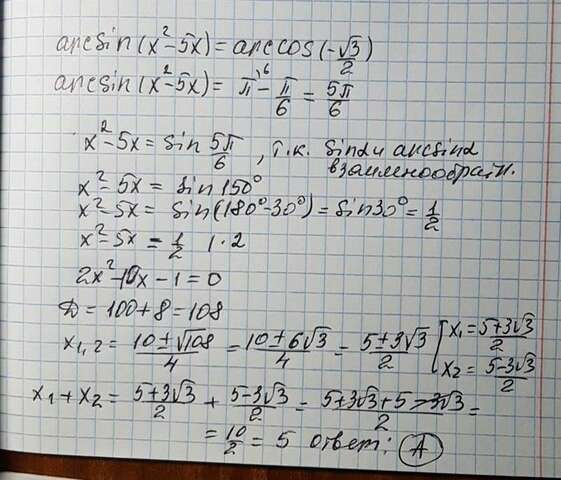 arcsin(x²-5x) = arccos(-√3/2)
arcsin(x²-5x) = π - π/6 = 5π/6
x²-5x = sin 5π/6, т.к. sinα и arcsinα
взаимнообратн.
x²-5x = sin 150°
x²-5x = sin(180°-30°) = sin30° = 1/2
x²-5x = 1/2 | · 2
2x²-10x-1=0
D = 100+8=108
x₁,₂ = (10±√108)/4 = (10±6√3)/4 = (5±3√3)/2 [x₁ = (5+3√3)/2
x₂ = (5-3√3)/2
x₁+x₂ = (5+3√3)/2 + (5-3√3)/2 = (5+3√3+5-3√3)/2 =
= 10/2 = 5 ответ: A